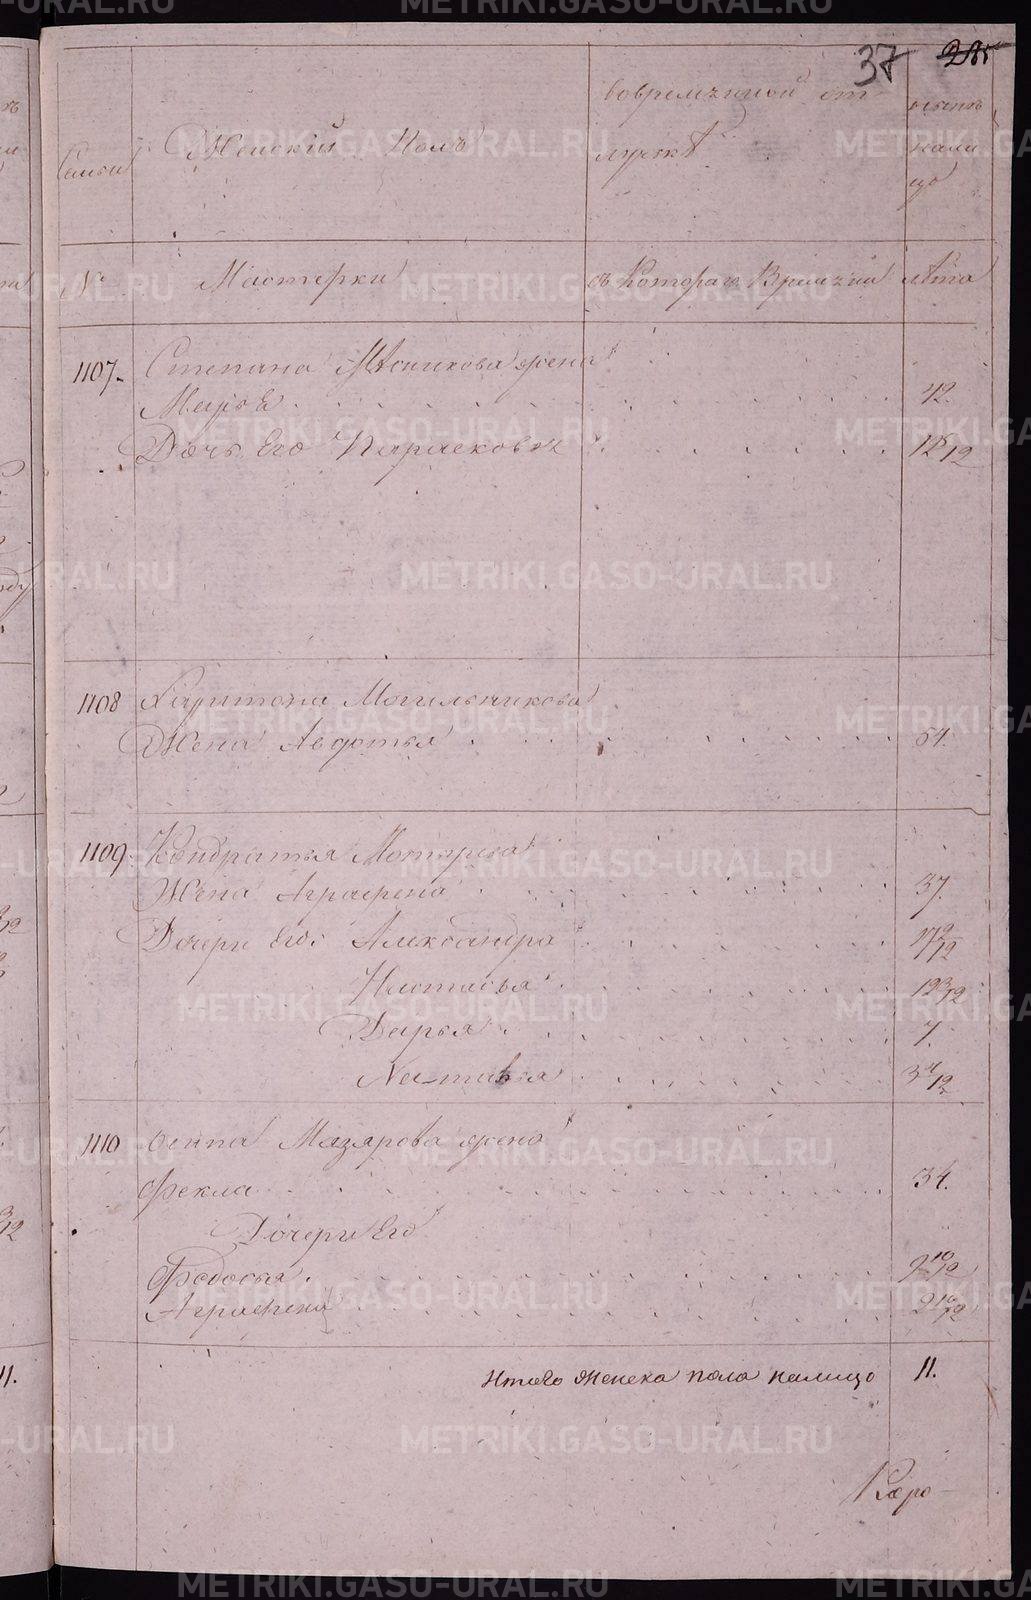 37
Семьи
Женский Полъ
вовременной от
лучкѣ
ныне
нали
цо
№
Мастерки
съ Котораго Времяни
лѣта
1107.
Степана Мясникова жена
Марья
42.
Дочь Его Парасковья
1108
Харитона Могильникова
Жена Авдотья
54.
1109
Кондратья
Жена Аграфена
37.
Дочери Его: Александра
Настасья
12 3/12
Дарья
7.
Наталья
1110
Осипа Мазярова жена
Фекла
34.
Дочери Его
Федосья
9 10/12
Аграфена
Итого Женска пола налицо
11.
METRIKI.GASO-URAL.RU